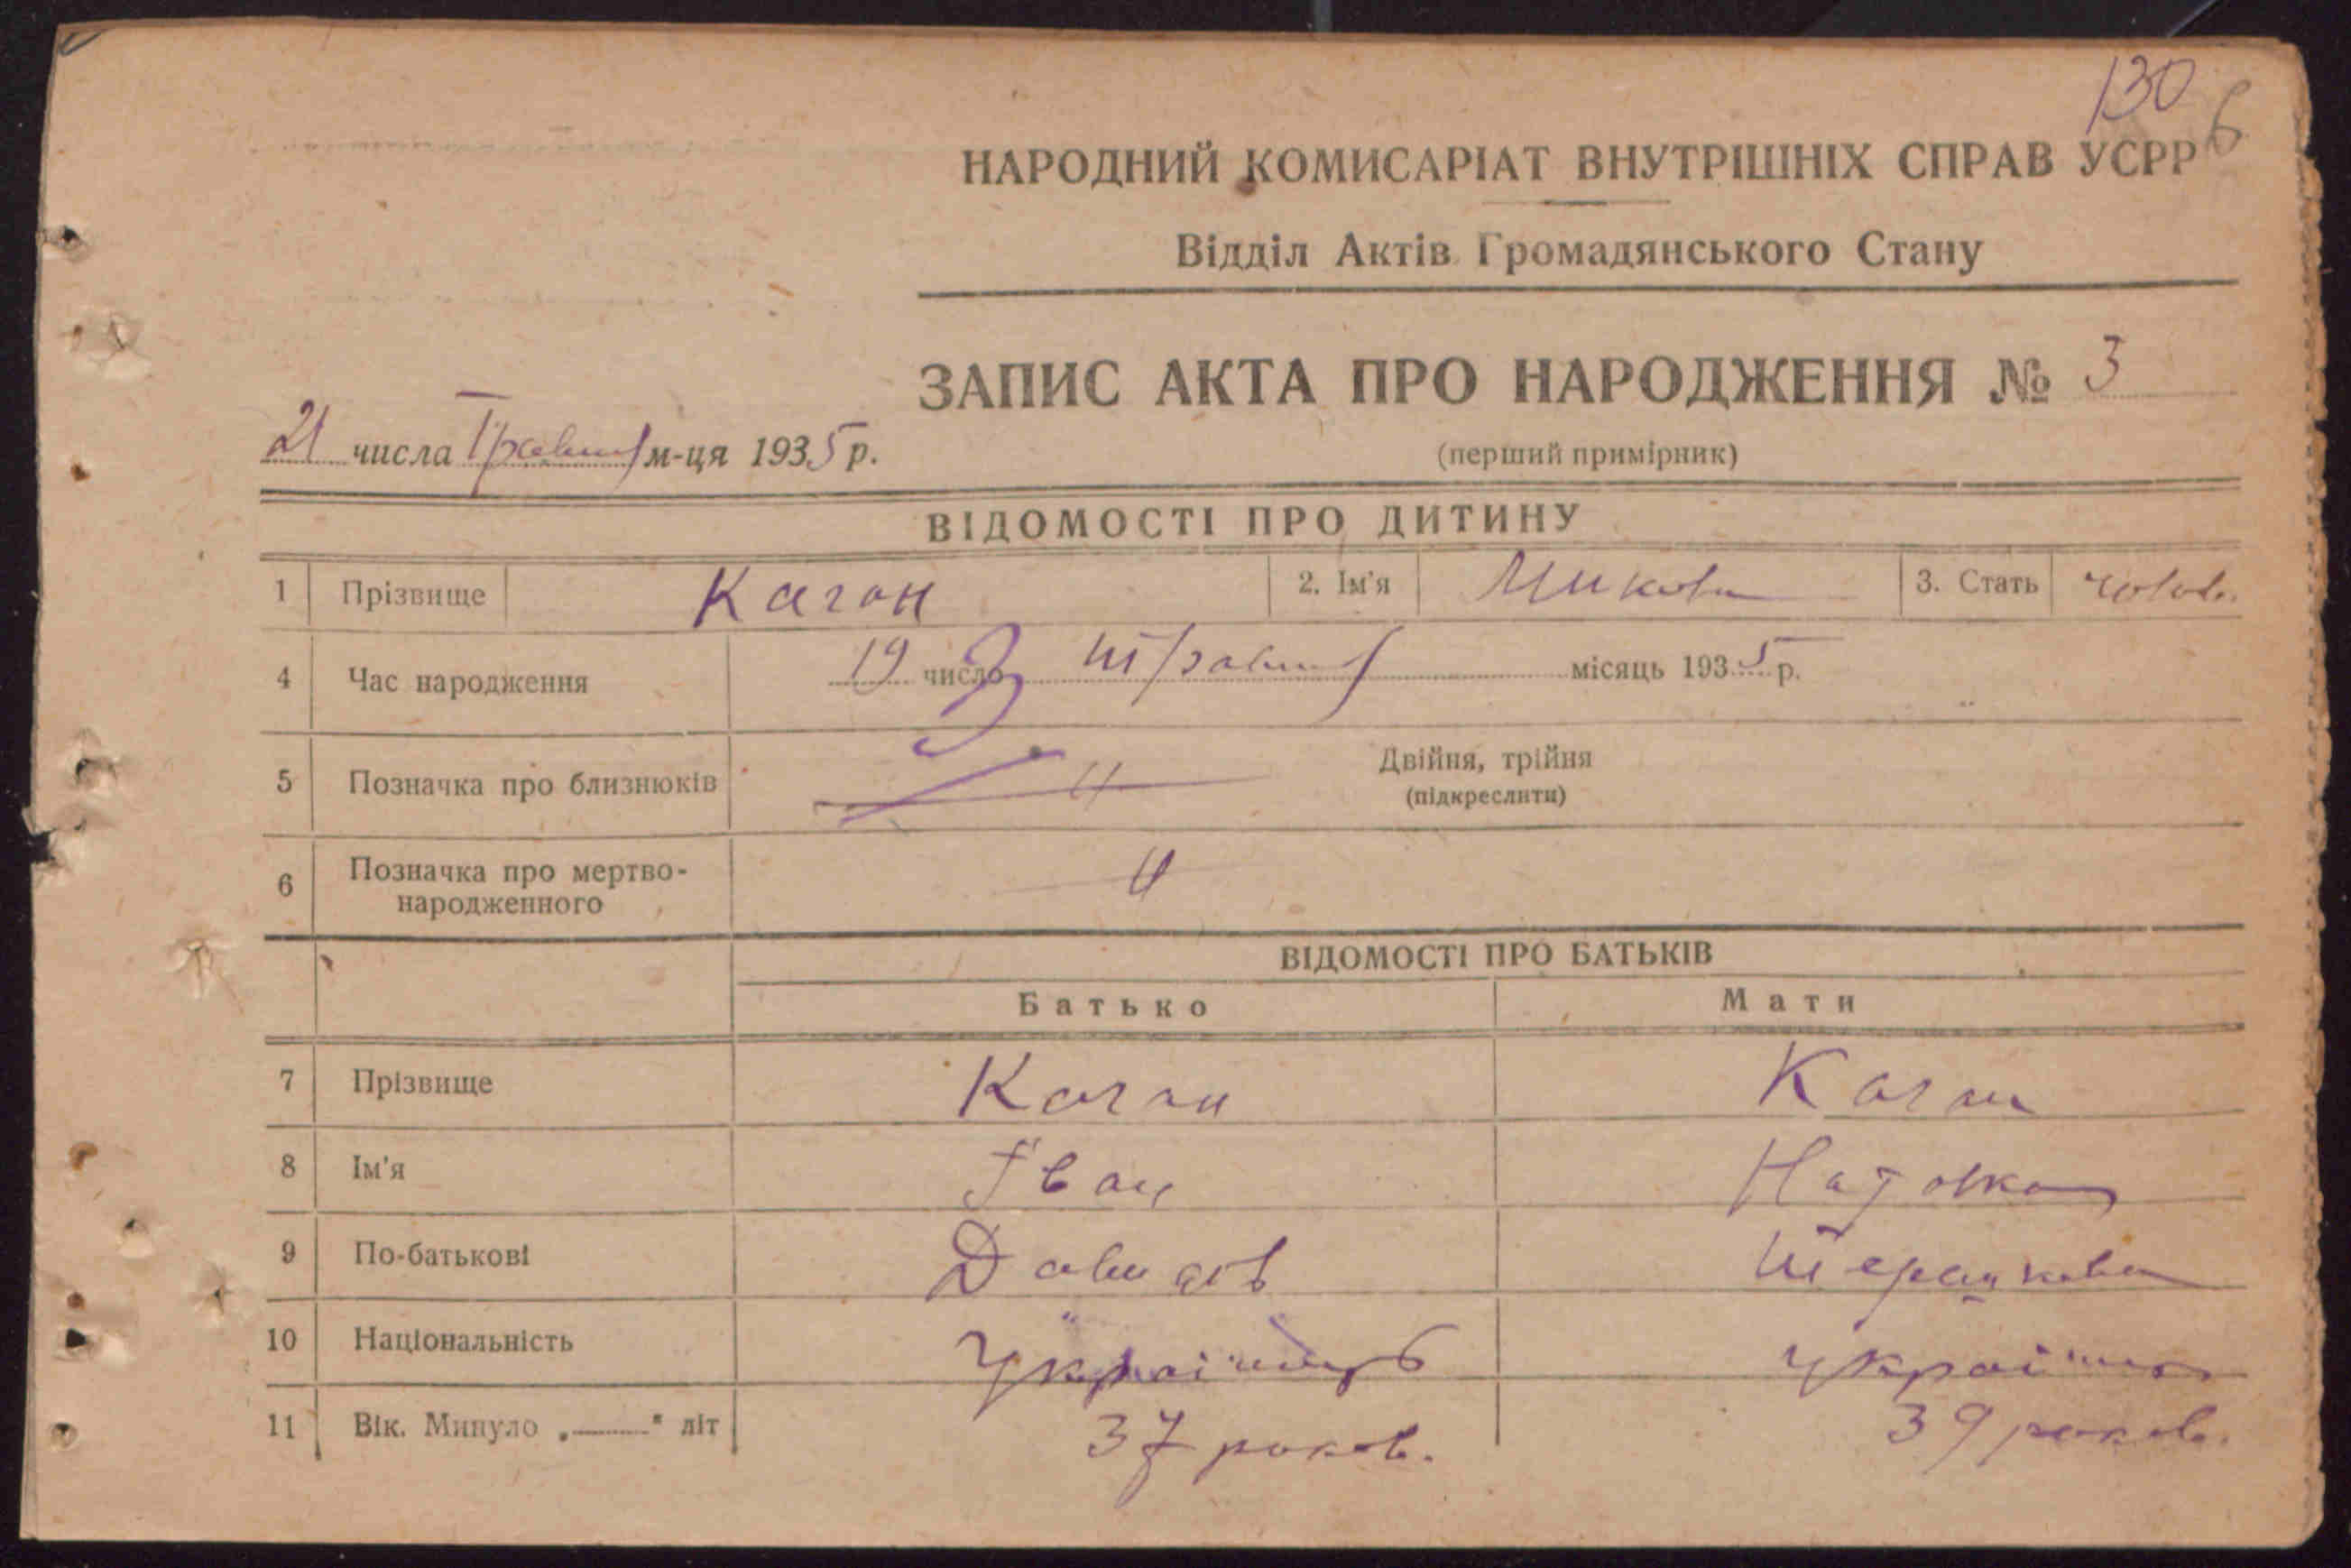 130
6
НАРОДНИЙ КОМИСАРІАТ ВНУТРІШНІХ СПРАВ УСРР
Відділ Актів Громадянського Стану
ЗАПИС АКТА ПРО НАРОДЖЕННЯ № 3
21 числа Травня м-ця 1935 р.
(перший примірник)
ВІДОМОСТІ ПРО ДИТИНУ
1 Прізвище Каган 2. Ім'я Микола 3. Стать
4 Час народження 19 число травня місяць 1935 р.
5 Позначка про близнюків Двійня, трійня
(підкреслити)
6 Позначка про мертво-
народженного
ВІДОМОСТІ ПРО БАТЬКІВ
Батько Мати
7 Прізвище Каган Каган
8 Ім'я Іван
9 По-батькові Давидов
10 Національність Українець Українка
11 Вік. Минуло „ " літ 37 років. 39 років.